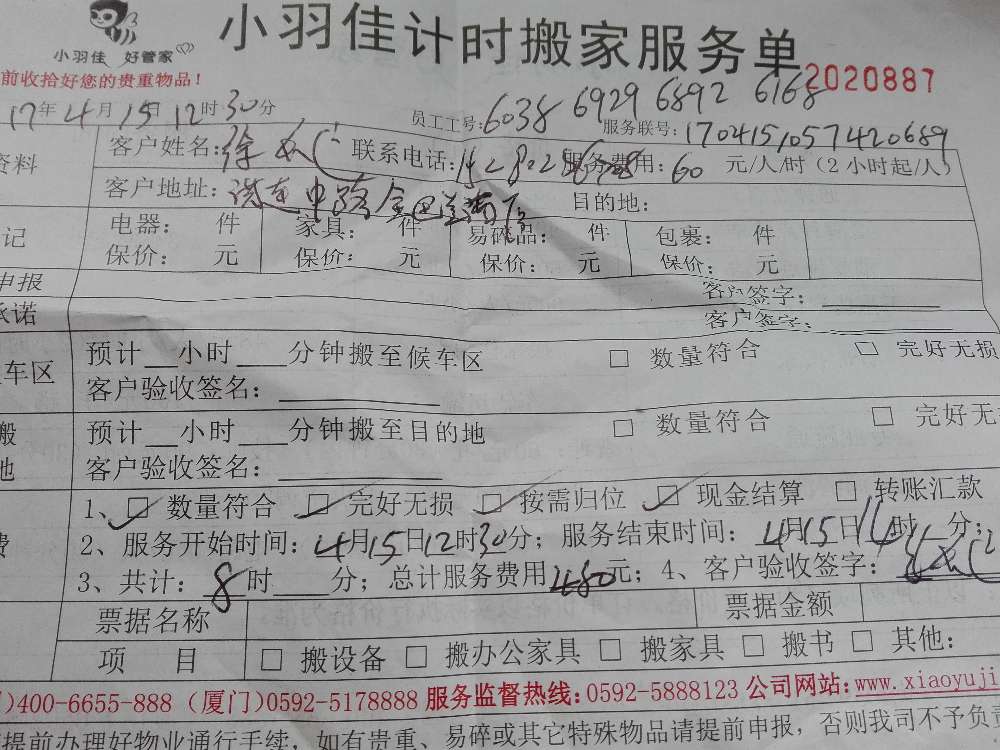 小羽佳 好管家
小羽佳计时搬家服务单
前收拾好您的贵重物品！
2020887
17年4月15日12时30分
员工工号:6038 6929 6892 6168
服务联号:170415105742 0689
资料
客户姓名:徐
联系电话:
服务费用:60元/人/时（2小时起/人）
客户地址:
目的地:
记
电器: 件
家具: 件
易碎品: 件
包裹: 件
保价: 元
保价: 元
保价: 元
保价: 元
申报
客户签字:
承诺
客户签字:
车区
预计 小时 分钟搬至候车区
□ 数量符合
□ 完好无损
客户验收签名:
搬
地
预计 小时 分钟搬至目的地
□ 数量符合
□ 完好无
客户验收签名:
费
1、☑ 数量符合 ☑ 完好无损 ☑ 按需归位 ☑ 现金结算 □ 转账汇款
2、服务开始时间: 4月15日12时30分; 服务结束时间: 4月15日 时 分;
3、共计: 8时 分; 总计服务费用480元; 4、客户验收签字:
票据名称
票据金额
项 目
□ 搬设备 □ 搬办公家具 □ 搬家具 □ 搬书 □ 其他:
)400-6655-888 (厦门)0592-5178888 服务监督热线:0592-5888123 公司网站:www.xiaoyuji
提前办理好物业通行手续，如有贵重、易碎或其它特殊物品请提前申报，否则我司不予负责